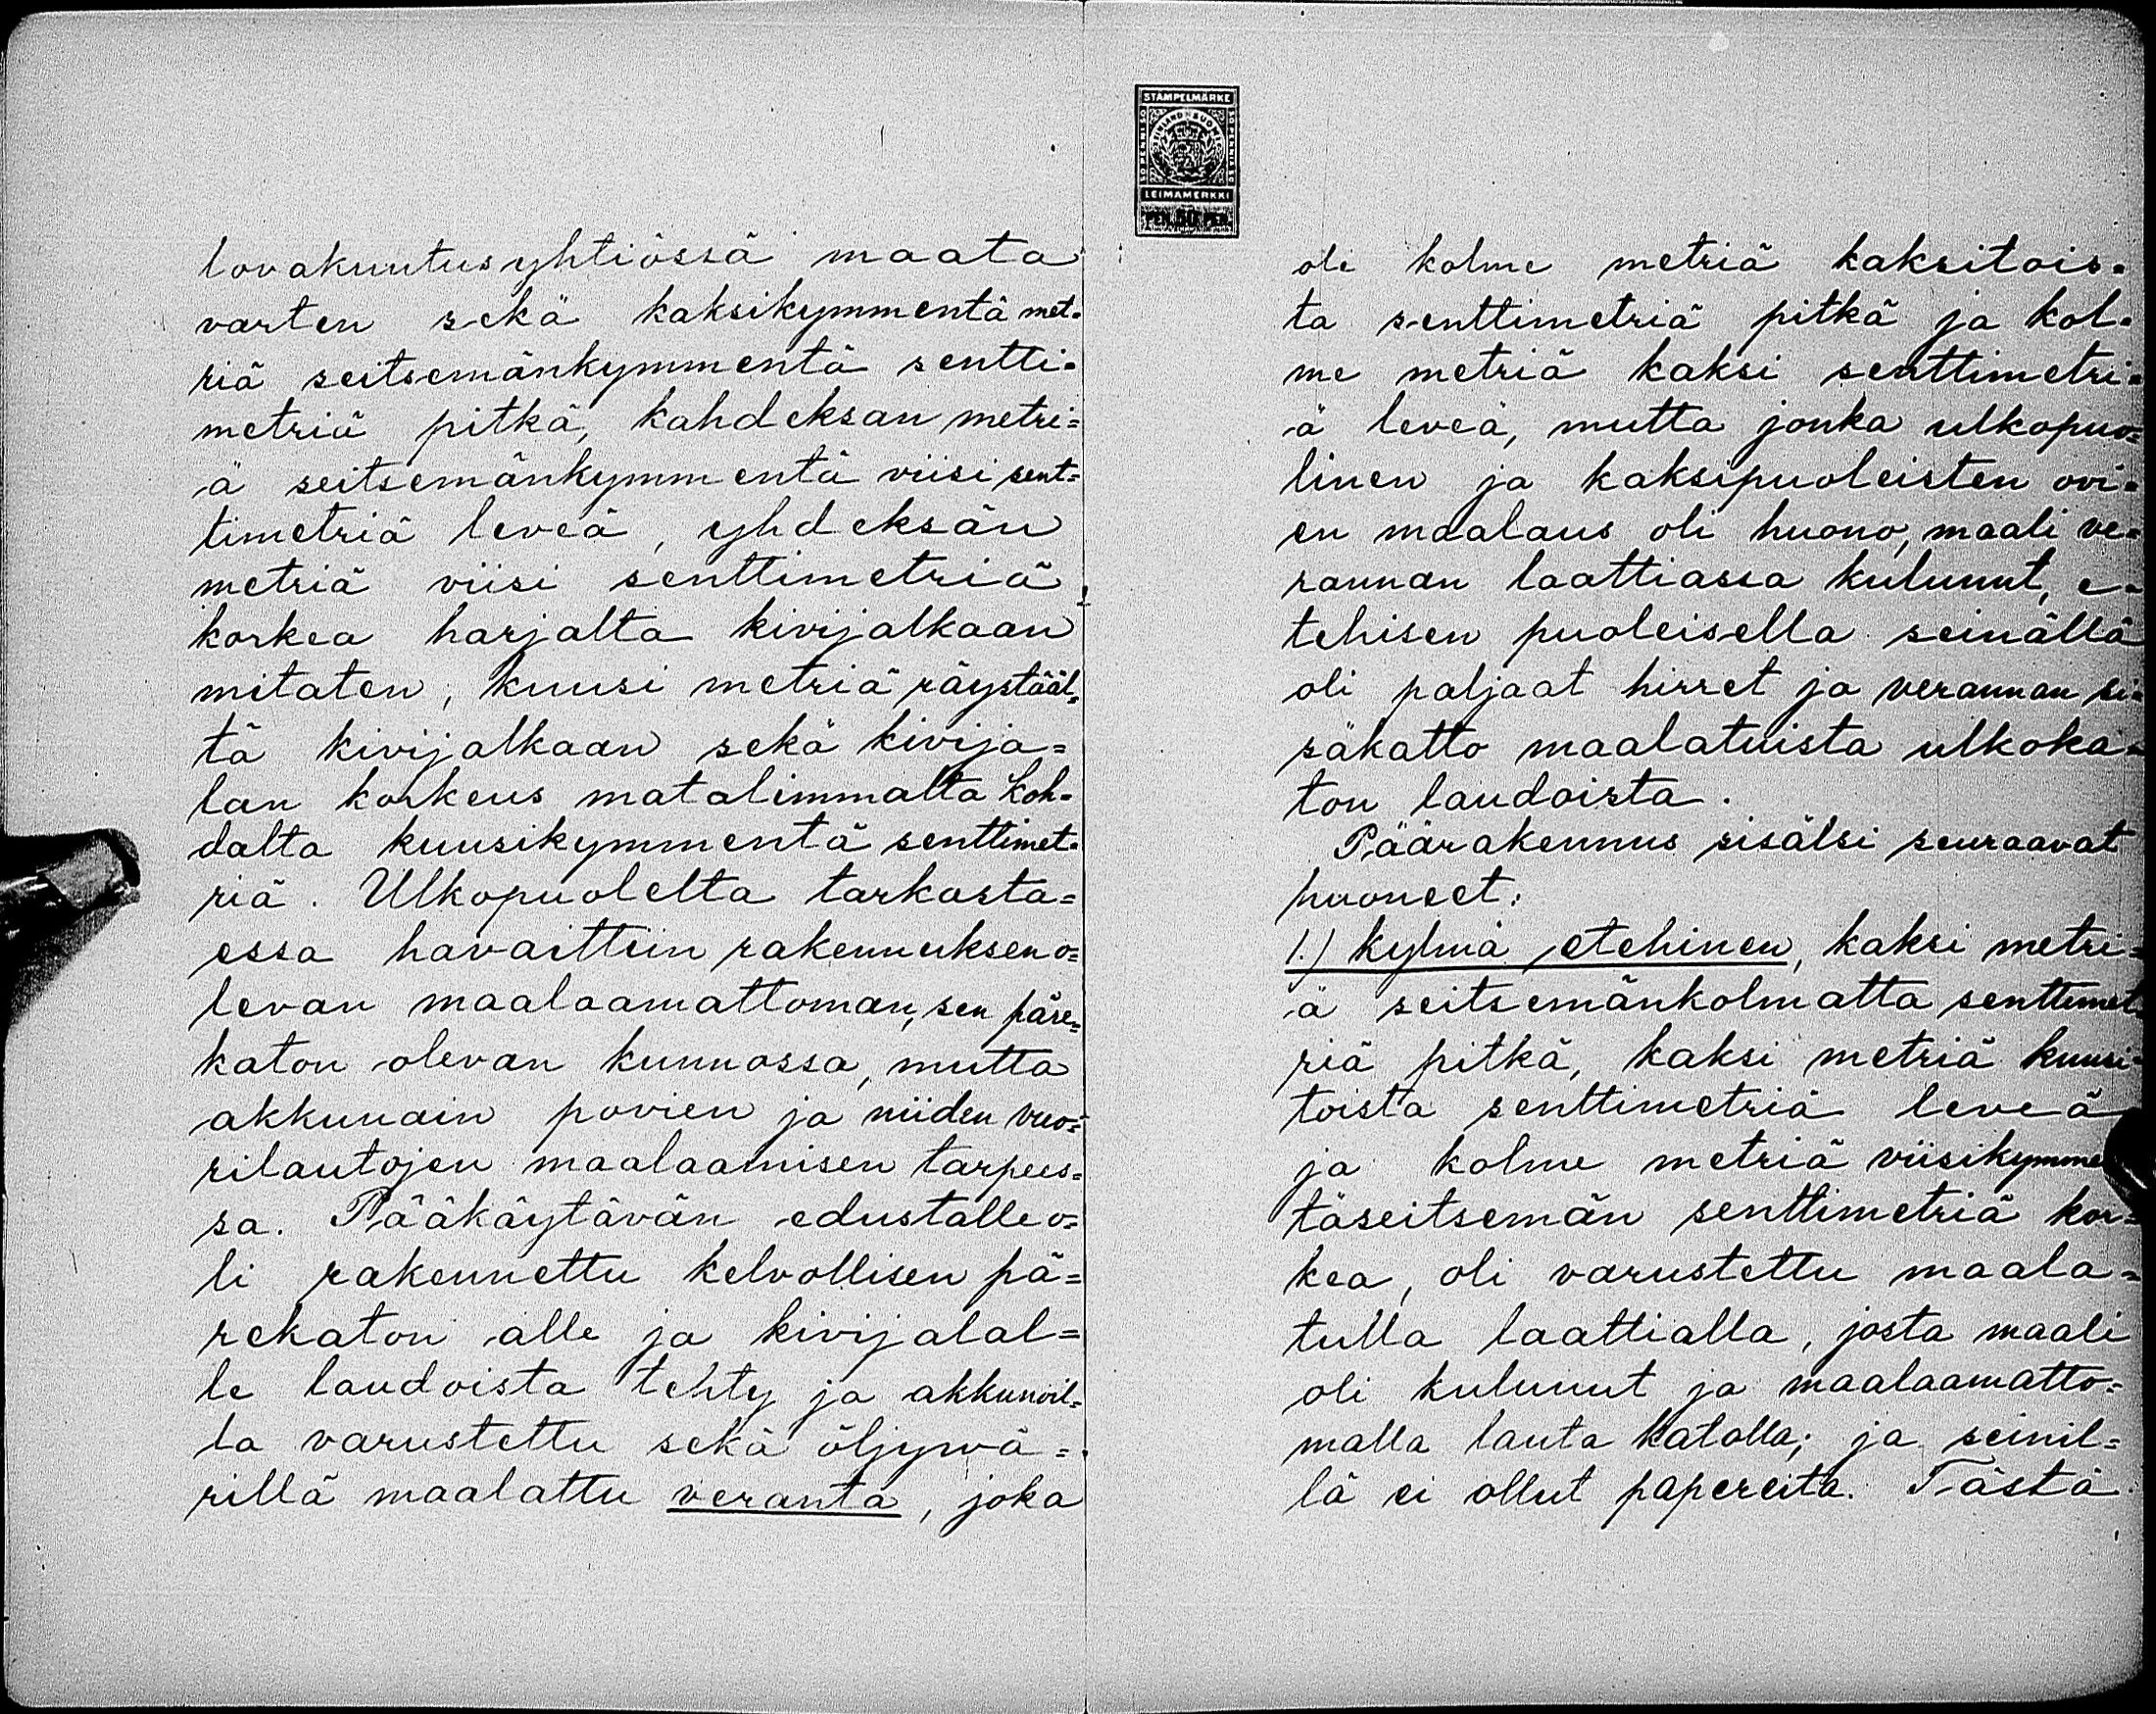 lovakuutusyhtiössä maata
varten sekä kaksikymmentä met-
riä seitsemänkymmentä sentti-
metriä pitkä, kahdeksan metri=
ä seitsemänkymmentä viisi sent=
timetriä leveä, yhdeksän
metriä viisi senttimetriä
korkea harjalta kivijalkaan
mitaten, kuusi metriä räystääl=
tä kivijalkaan sekä kivija=
lan korkeus matalimmalta koh-
dalta kuusikymmentä senttimet-
riä. Ulkopuolelta tarkasta=
essa havaittiin rakennuksen o=
levan maalaamattoman, sen päre=
katon olevan kunnossa, mutta
akkunain povien ja niiden vuo=
rilautojen maalaamisen tarpees=
sa. Pääkäytävän edustalle o=
li rakennettu kelvollisen pä=
rekaton alle ja kivijalal=
le laudoista tehty ja akkunoil=
la varustettu sekä öljyvä=
rillä maalattu veranta, joka
STÄMPELMÄRKE
FINLAND SUOMI
50 PENNI 50
LEIMAMERKKI
PEN. 50 PEN.
oli kolme metriä kaksitois-
ta senttimetriä pitkä ja kol-
me metriä kaksi senttimetri-
ä leveä, mutta jonka ulkopuo=
linen ja kaksipuoleisten ovi-
en maalaus oli huono, maali ve-
rannan laattiassa kulunut, e-
tehisen puoleisella seinällä
oli paljaat hirret ja verannan si-
säkatto maalatuista ulkoka-
ton laudoista.
Päärakennus sisälsi seuraavat
huoneet:
1.) kylmä etehinen, kaksi metri=
ä seitsemänkolmatta senttimet-
riä pitkä, kaksi metriä kuusi-
toista senttimetriä leveä
ja kolme metriä viisikymme
täseitsemän senttimetriä kor=
kea, oli varustettu maala=
tulla laattialla, josta maali
oli kulunut ja maalaamatto=
malla lauta katolla; ja seinil=
lä ei ollut papereita. Tästä